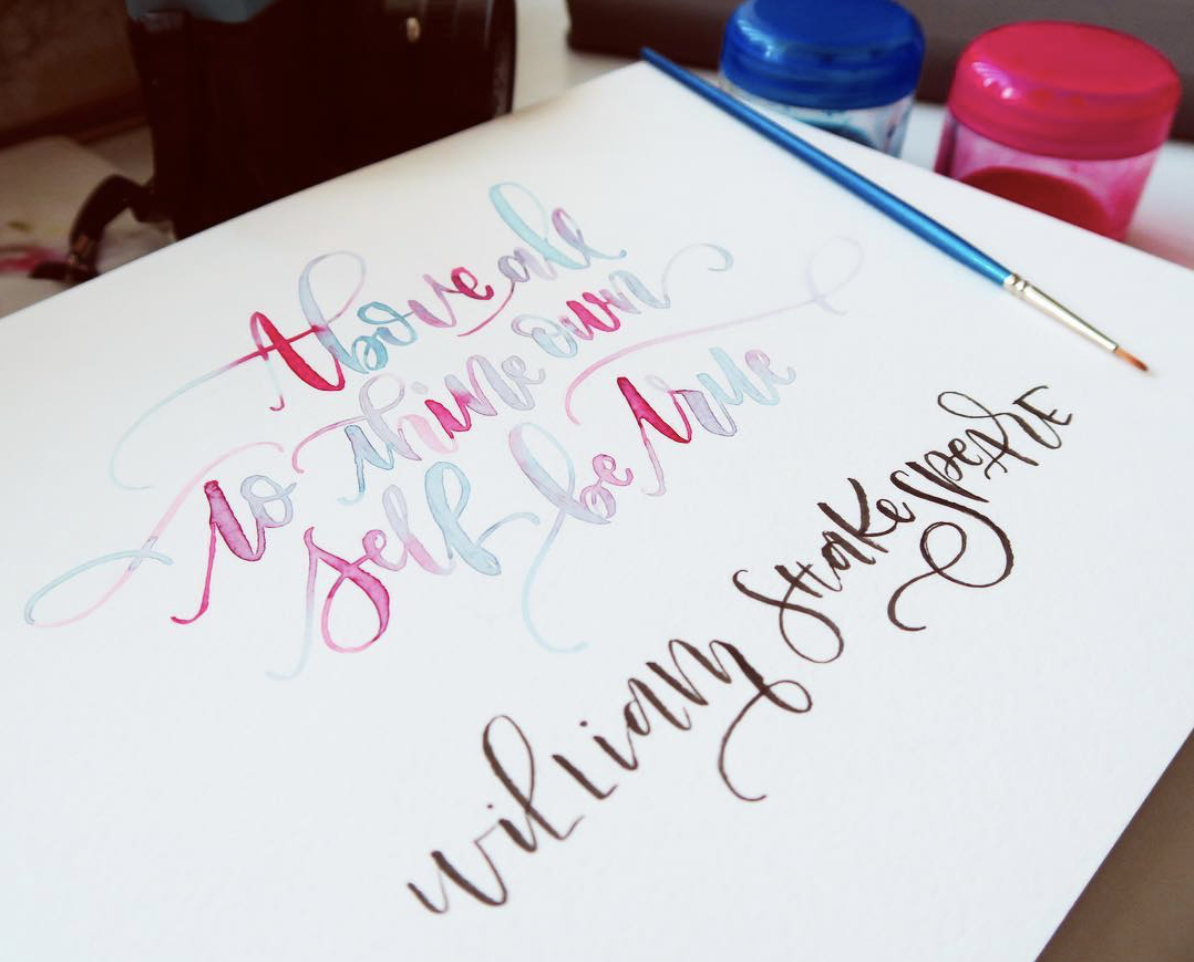 Above all
to thine own
self be true
William Shakespeare